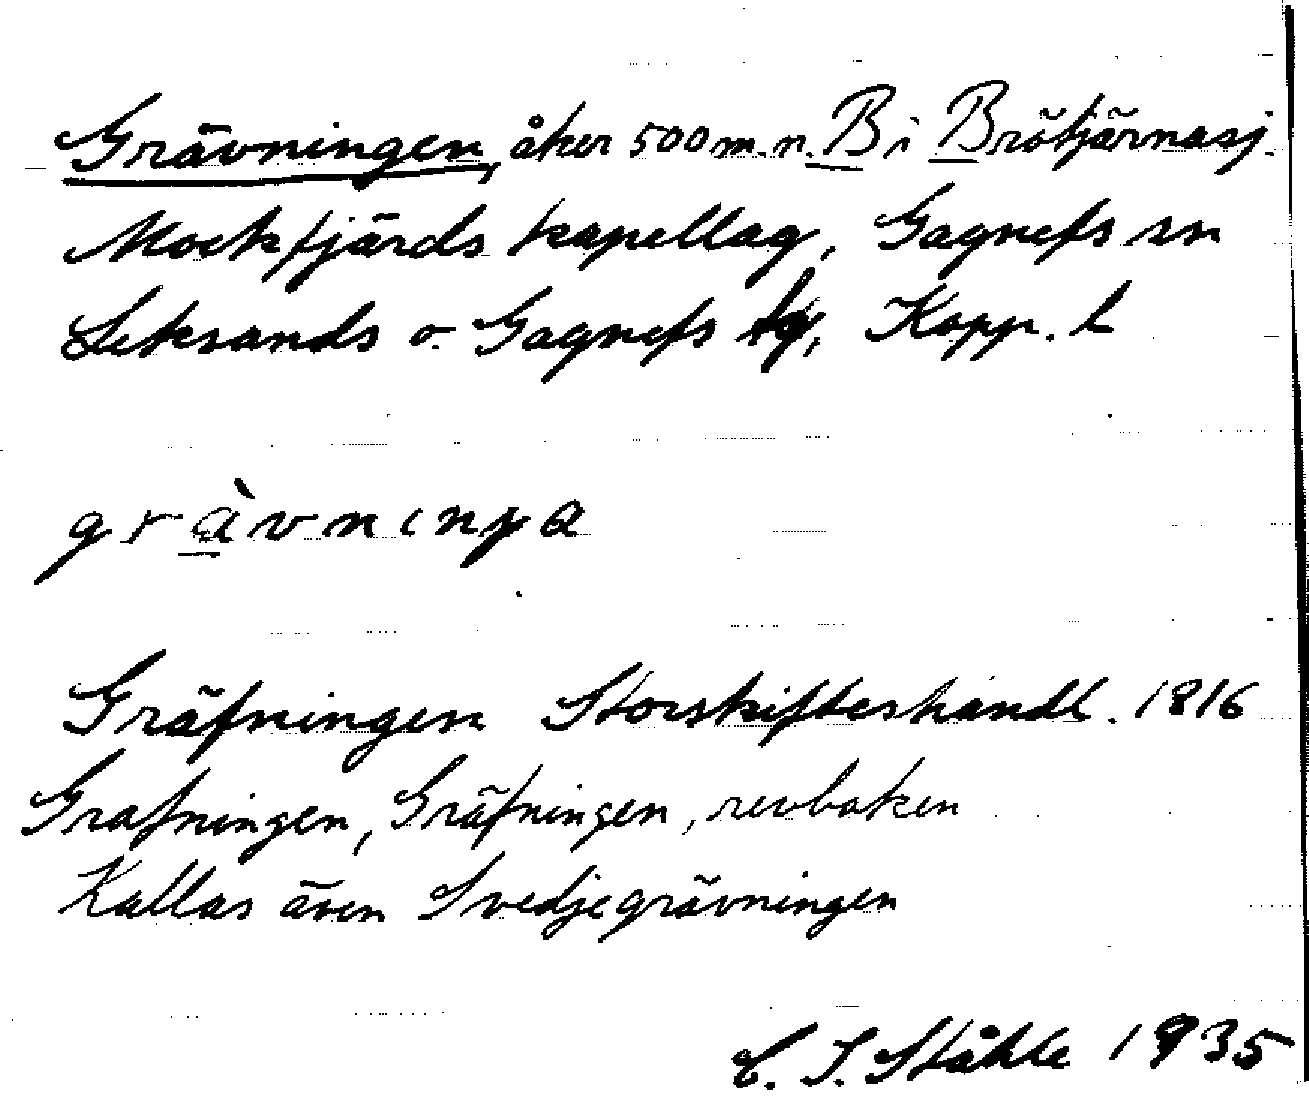 Grävningen, åker 500 m. n. B i Brötjärnasj.
Mockfjärds kapellag, Gagnefs sn
Leksands o. Gagnefs tg, Kopp. l
grävniŋa
Gräfningen Storskifteshandl. 1816
Grafningen, Gräfningen, revboken
Kallas även Svedjegrävningen
C. I. Ståhle 1935